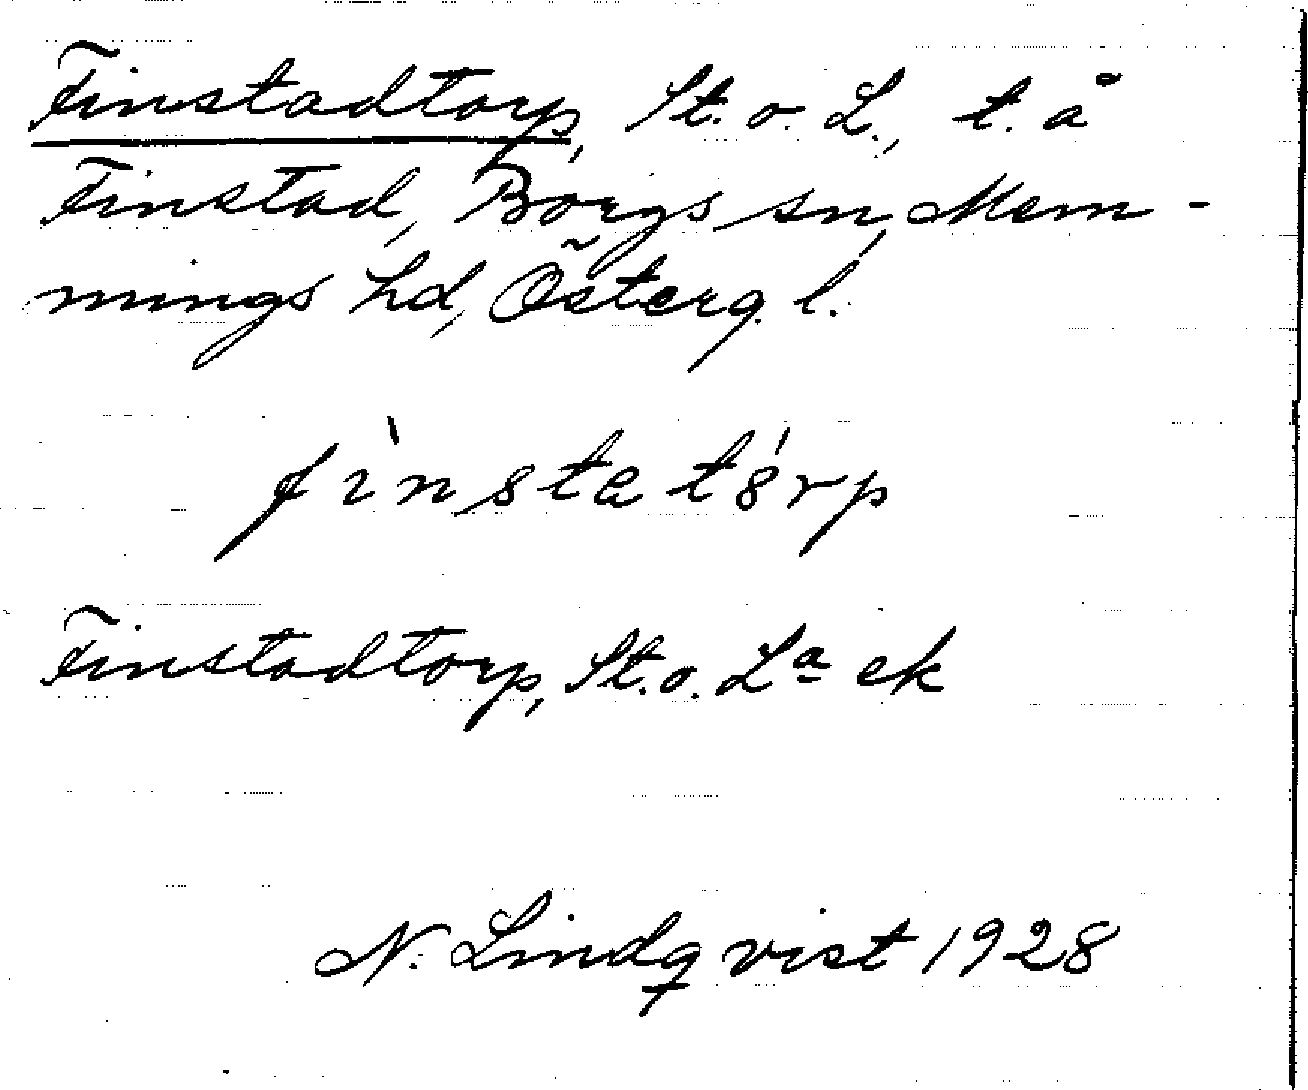 Finstadtorp, St. o. L., t. å
Finstad, Borgs sn, Mem-
mings hd, Österg. l.
fìnstatórp
Finstadtorp, St. o. La ek
N. Lindqvist 1928